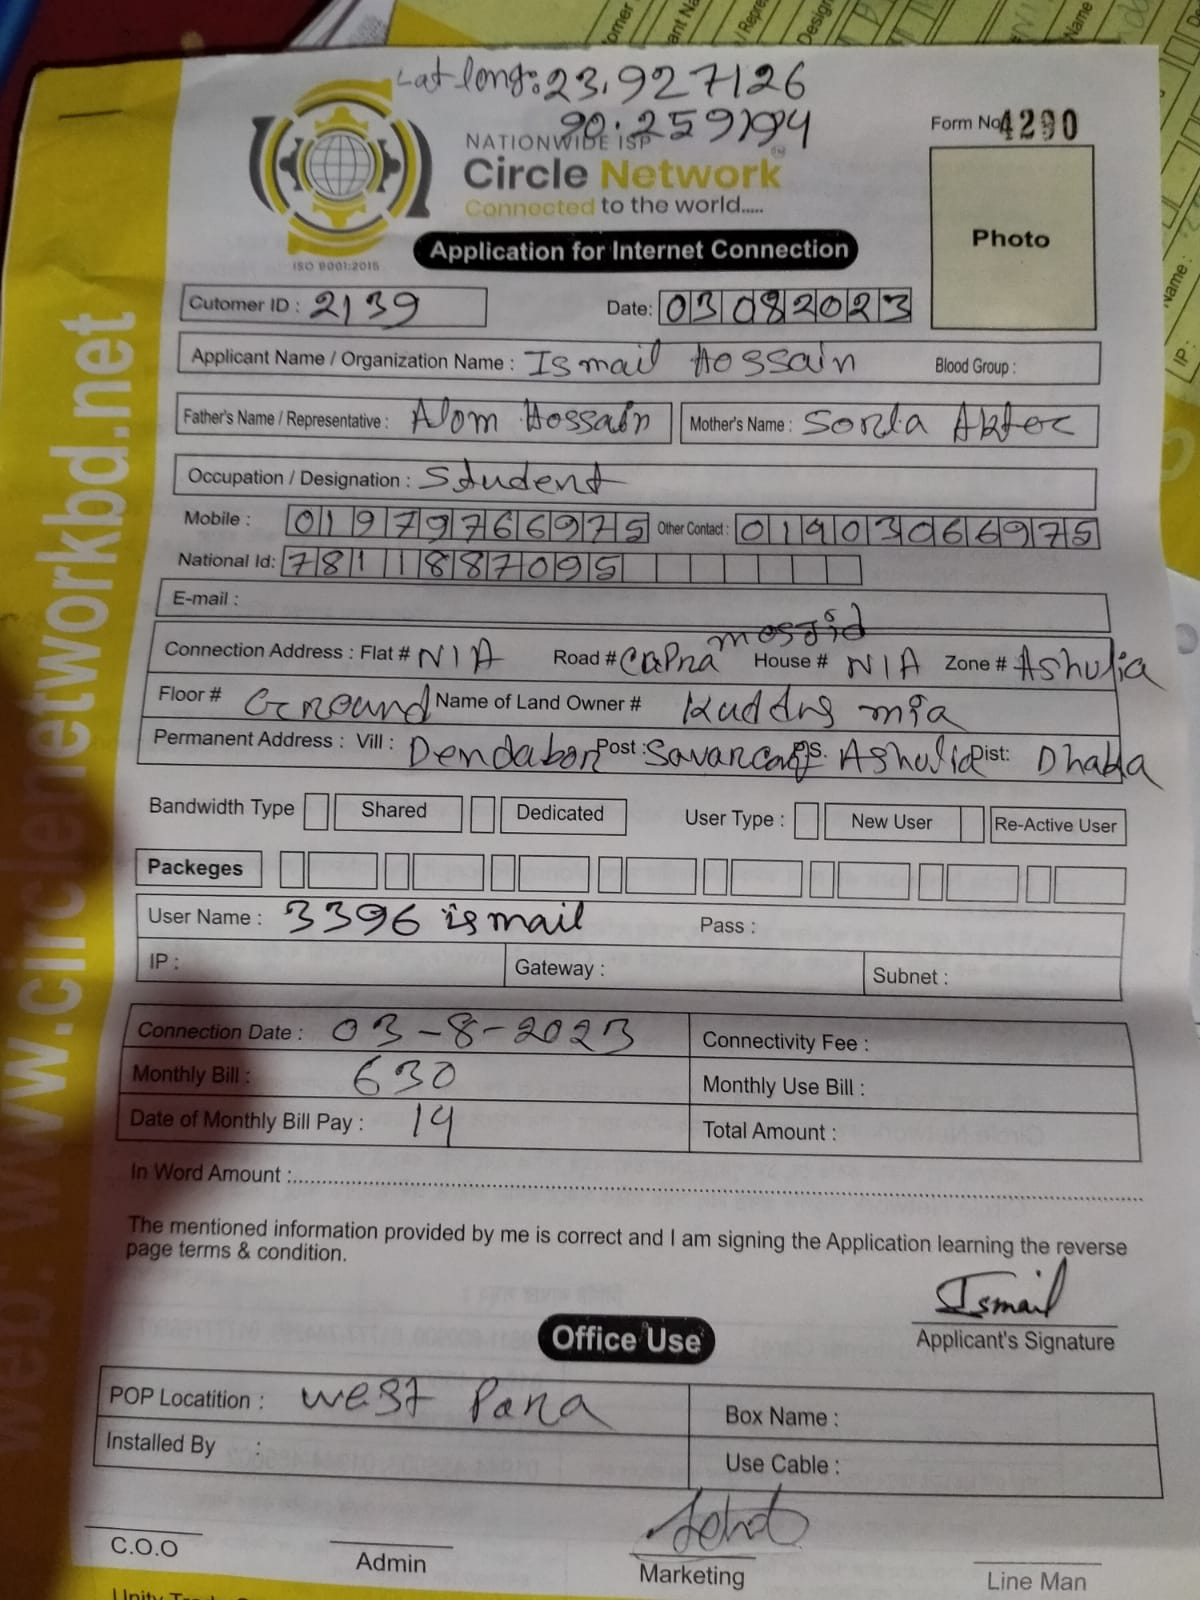 Lat long:23.927126
90.259194
Form No. 4290
NATIONWIDE ISP
Circle Network
Connected to the world.....
ISO 9001:2015
Photo
Application for Internet Connection
Cutomer ID : 2139
Date: 03082023
Applicant Name / Organization Name : Ismail Hossain Blood Group :
Father's Name / Representative : Alom Hossain Mother's Name : Sonia Akter
Occupation / Designation : Student
Mobile : 01979766975 Other Contact : 01903066975
National Id: 7811887095
E-mail :
mosjid
Connection Address : Flat # N/A Road # Capna House # N/A Zone # Ashulia
Floor # Ground Name of Land Owner # Kuddus mia
Permanent Address : Vill : Dendabor Post : Savar P.S. Ashulia Dist: Dhaka
Bandwidth Type Shared Dedicated User Type : New User Re-Active User
Packeges
User Name : 3396 ismail Pass :
IP : Gateway : Subnet :
Connection Date : 03-8-2023 Connectivity Fee :
Monthly Bill : 630 Monthly Use Bill :
Date of Monthly Bill Pay : 14 Total Amount :
In Word Amount :
The mentioned information provided by me is correct and I am signing the Application learning the reverse
page terms & condition.
Ismail
Applicant's Signature
Office Use
POP Locatition : West Para Box Name :
Installed By : Use Cable :
C.O.O Admin Marketing Line Man
web: www.circlenetworkbd.net